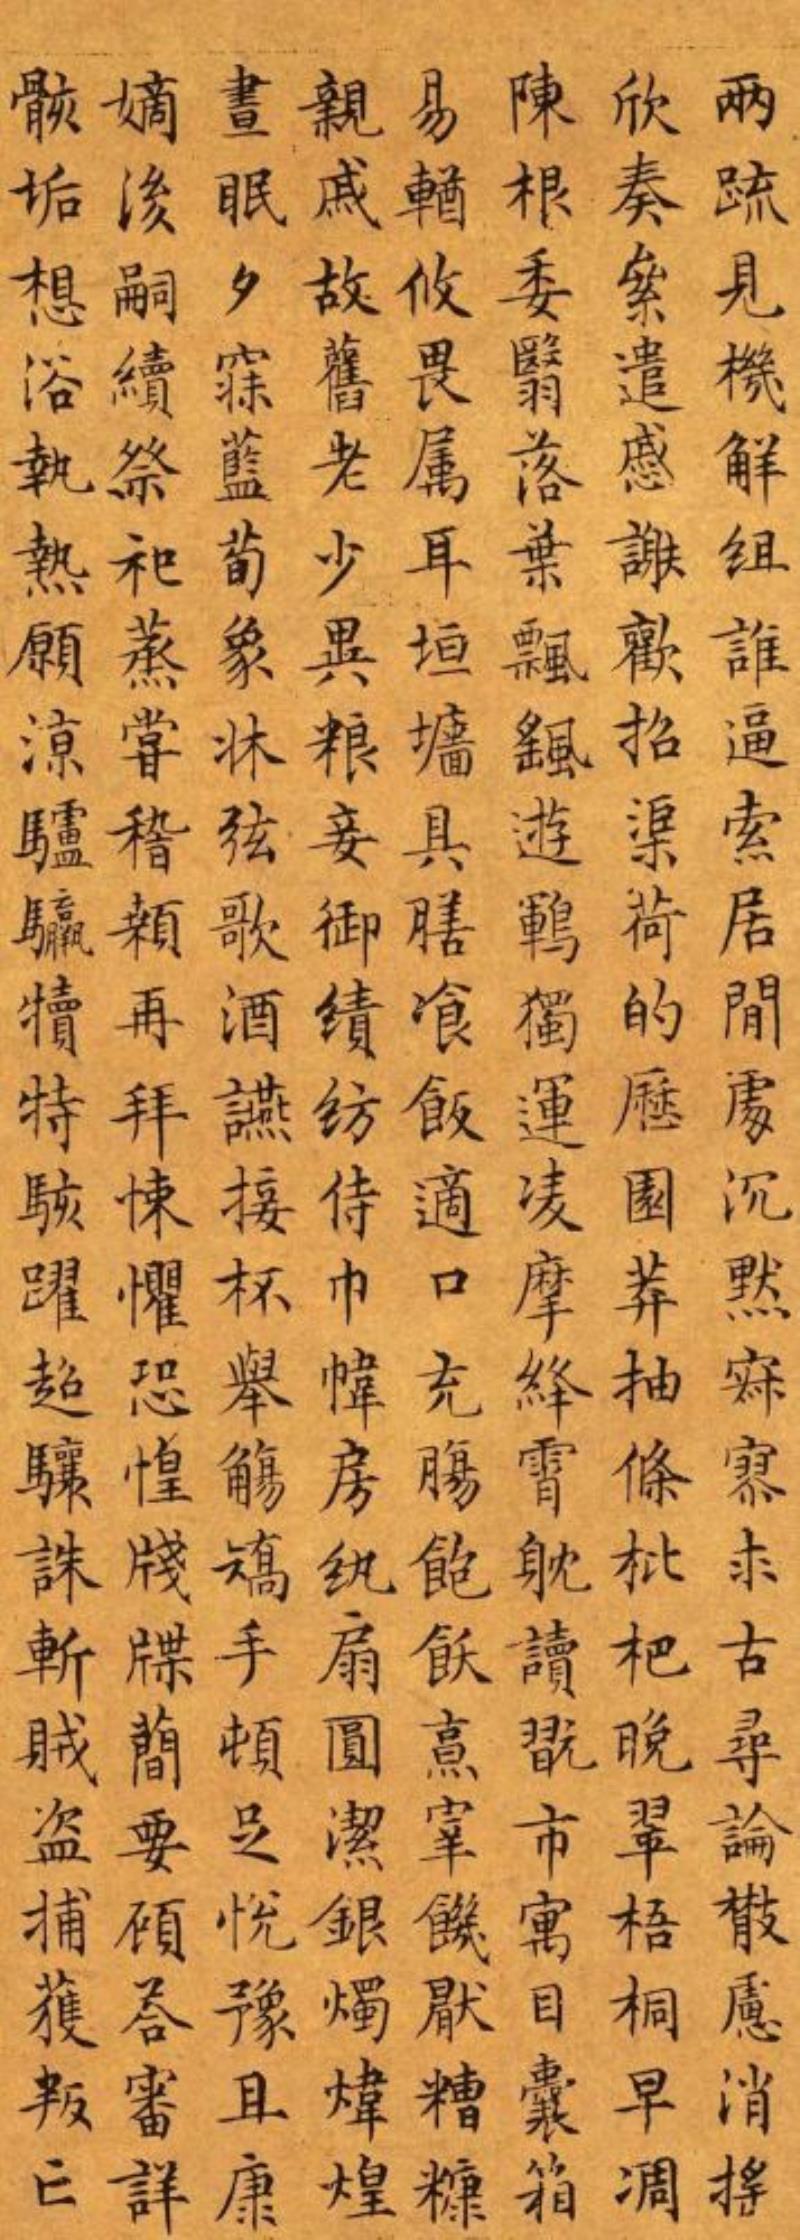 兩疏見機解組誰逼索居閒處沉默寂寥求古尋論散慮消搖
欣奏累遣慼謝歡招渠荷的歷園莽抽條枇杷晚翠梧桐早凋
陳根委翳落葉飄颻遊鵾獨運凌摩絳霄耽讀翫市寓目囊箱
易輶攸畏属耳垣墻具膳飡飯適口充腸飽飫烹宰饑厭糟糠
親戚故舊老少異粮妾御績紡侍巾帷房紈扇圓潔銀燭煒煌
晝眠夕寐藍荀象牀弦歌酒讌接杯舉觴矯手頓足悅豫且康
嫡後嗣續祭祀蒸嘗稽顙再拜悚懼恐惶牋牒蕳要顧荅審詳
骸垢想浴執熱願涼驢騾犢特駭躍超驤誅斬賊盜捕獲叛亡